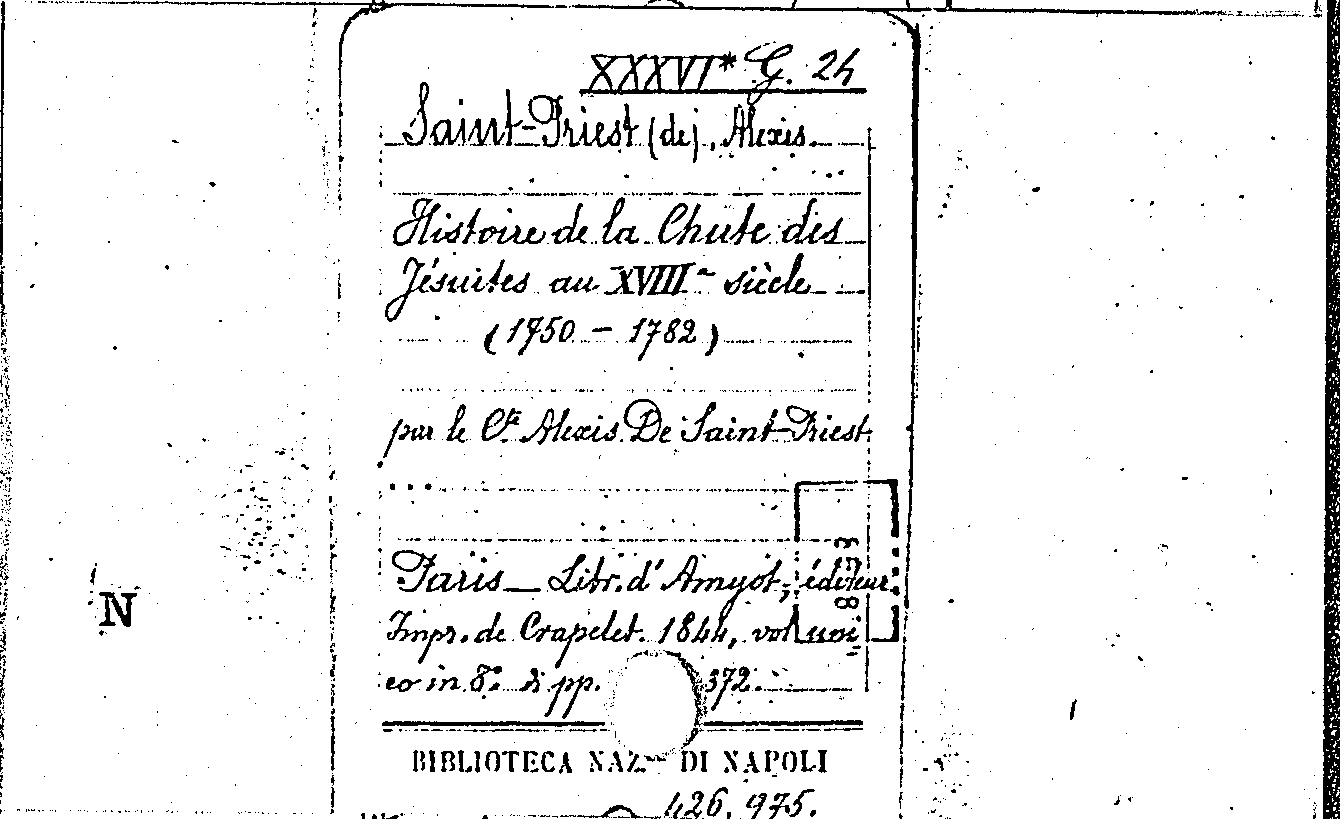 XXXVI* G. 24
Saint-Priest (de), Alexis.
Histoire de la Chute des
Jésuites au XVIIIᵉ siècle
(1750 - 1782)
par le Cte Alexis De Saint-Priest
...
Paris_ Libr. d'Amyot, éditeur
Impr. de Crapelet. 1844, vol. uni
co in 8.° di pp. 372.
378
N
BIBLIOTECA NAZ. DI NAPOLI
426,975.